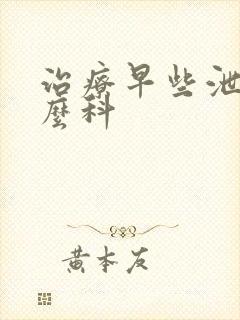 治療早些泄
麼科
黄本友